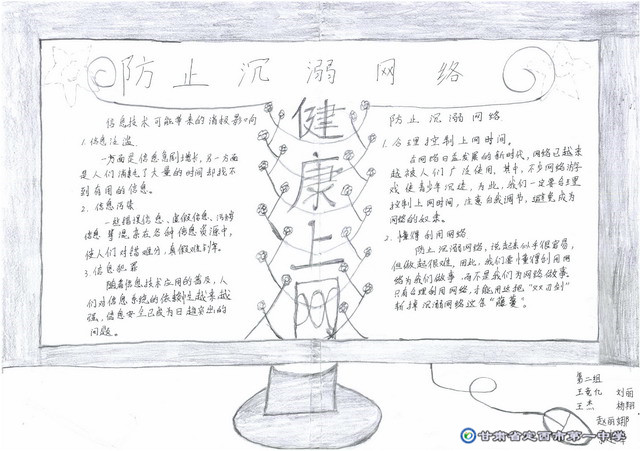 防止沉溺网络
健康上网
信息技术可能带来的消极影响
1.信息泛滥
一方面是信息急剧增长,另一方面
是人们消耗了大量的时间却找不
到有用的信息。
2.信息污染
一些错误信息、虚假信息、污秽
信息等混杂在各种信息资源中,
使人们对错难分,真假难辨。
3.信息犯罪
随着信息技术应用的普及,人
们对信息系统的依赖性越来越
强,信息安全已成为日趋突出的
问题。
防止沉溺网络
1.合理控制上网时间。
在网络日益发展的新时代,网络已越来
越被人们广泛使用。其中,不少网络游
戏使青少年沉迷,为此,我们一定要合理
控制上网时间,注意自我调节,避免成为
网络的奴隶。
2.懂得利用网络
防止沉溺网络,说起来似乎很容易,
但做起很难,因此,我们要懂得利用网
络为我们做事,而不是我们为网络做事。
只有合理利用网络,才能用这把“双刃剑”
斩掉沉溺网络这条“藤蔓”。
第二组
王竟九 刘丽
王杰 杨翔
赵丽娜
甘肃省定西市第一中学